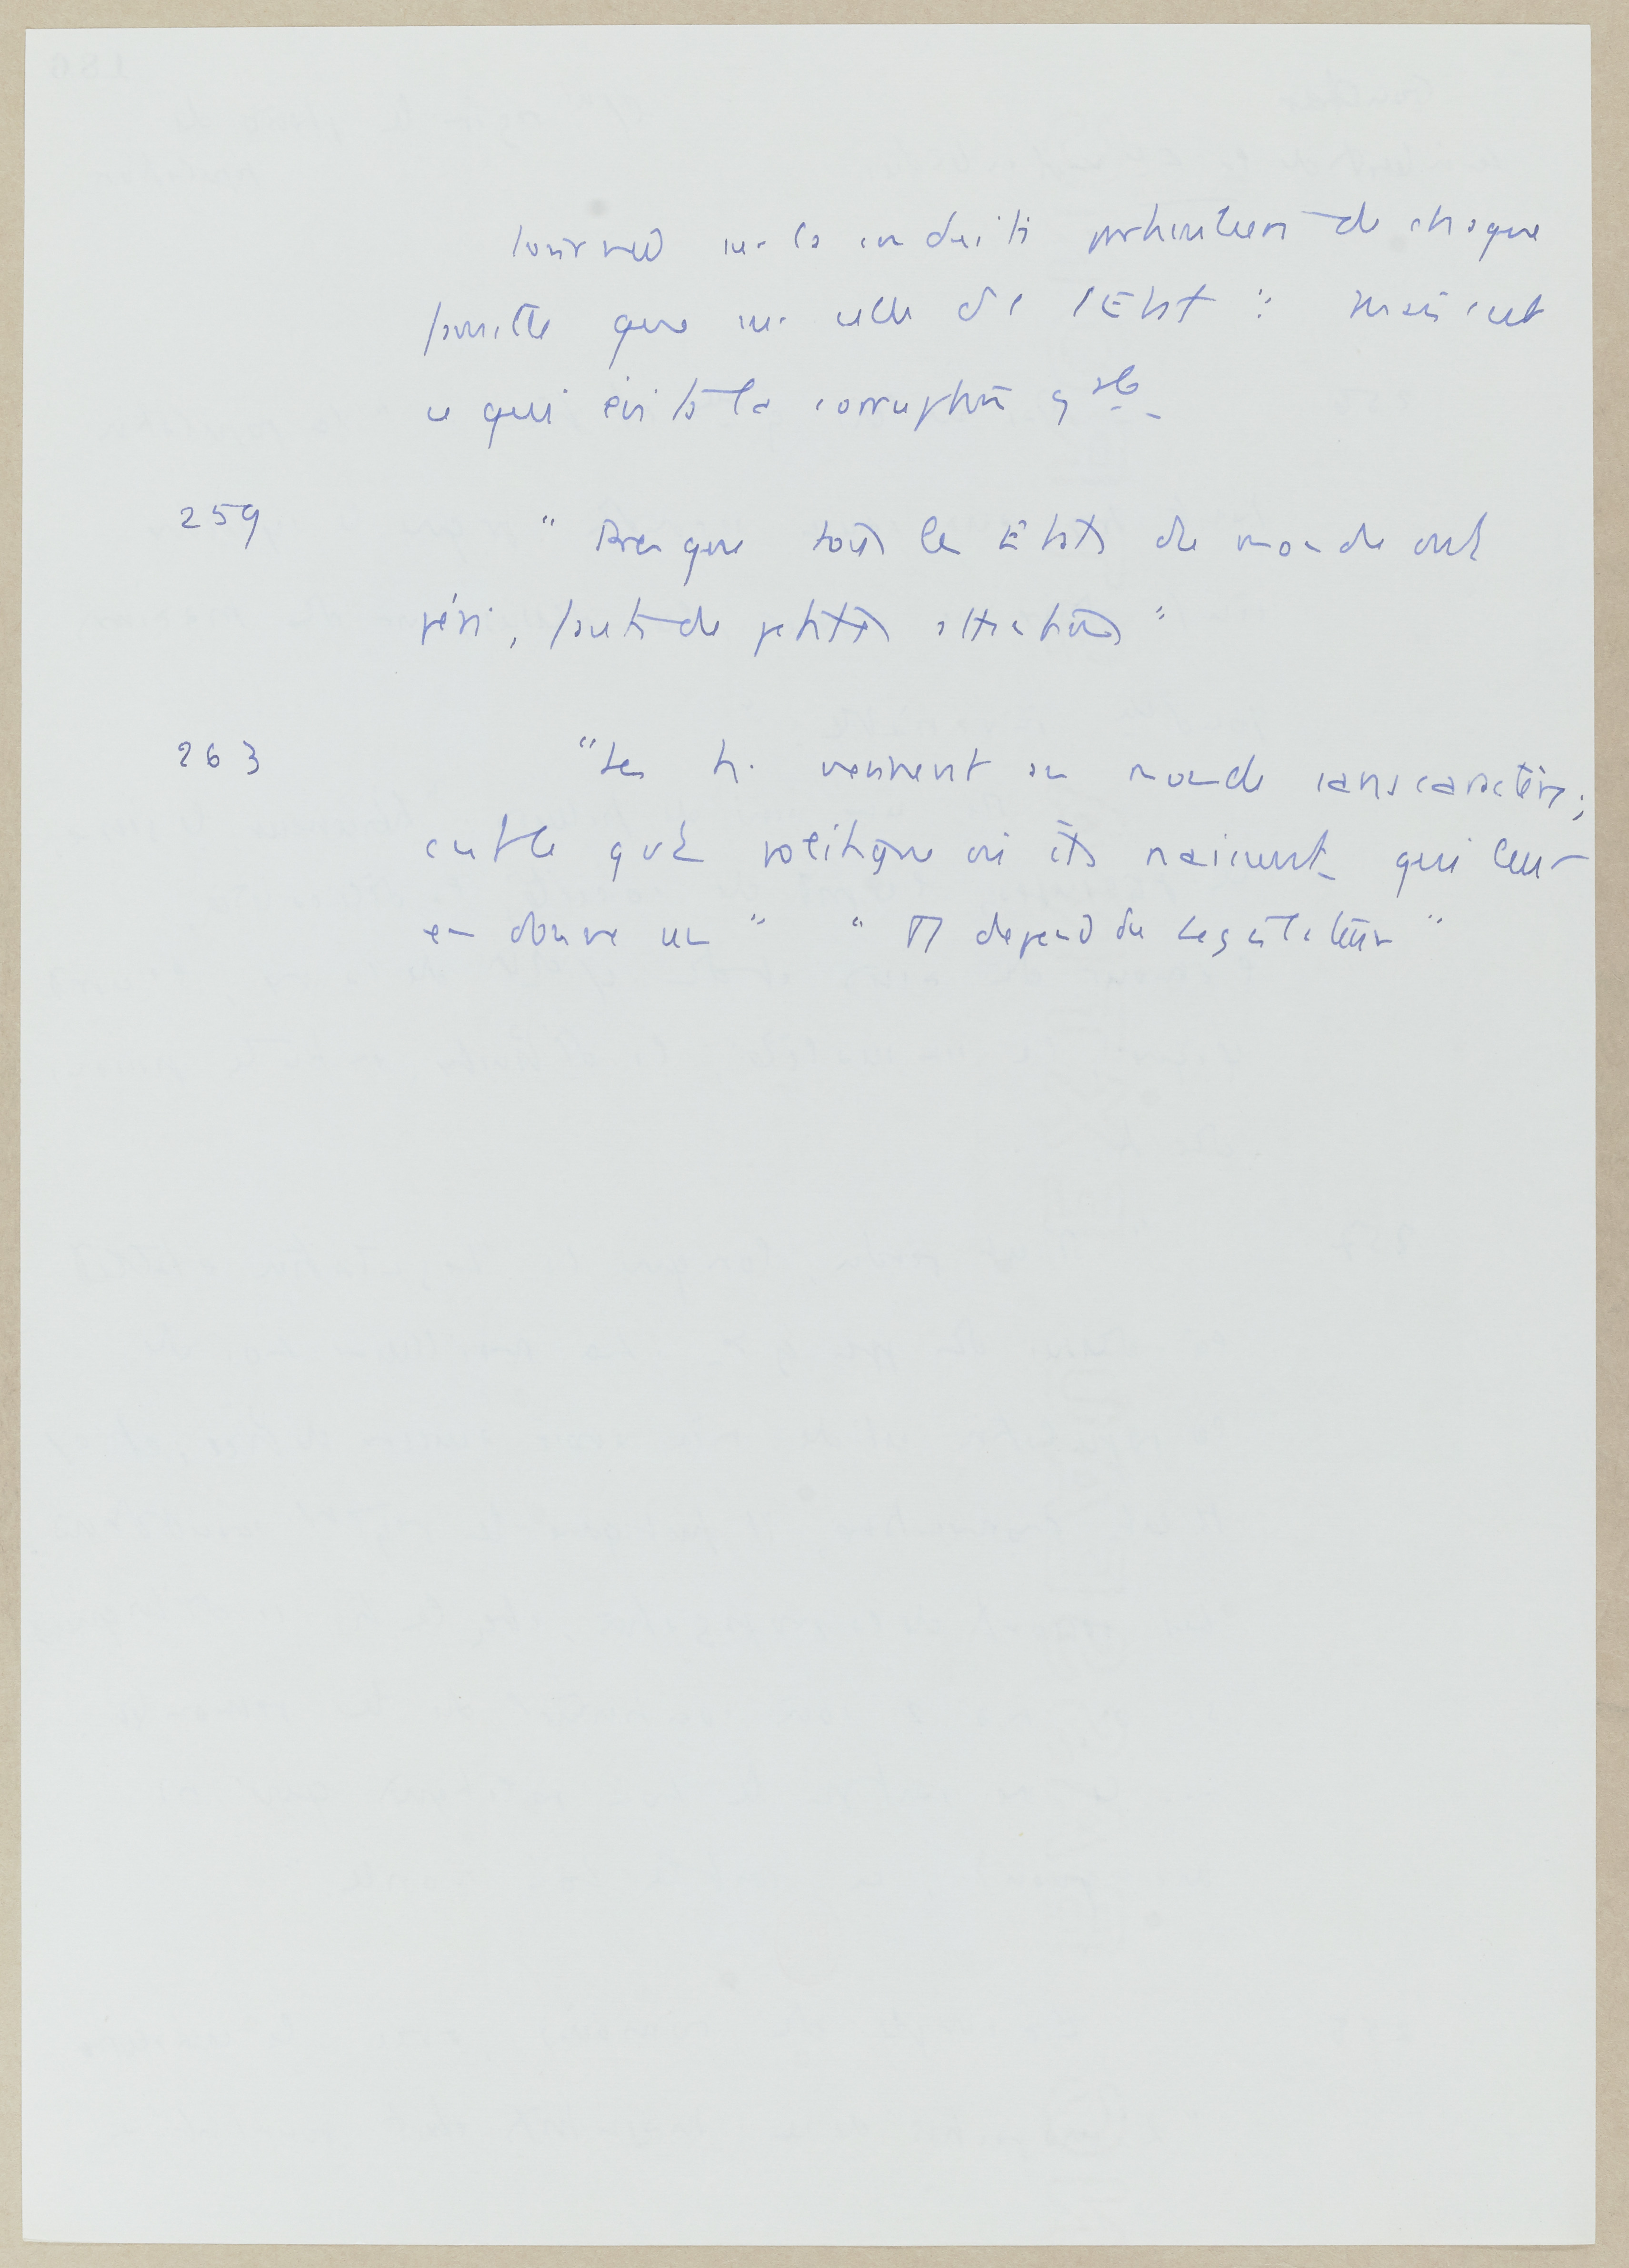 tourné sur la conduite particulière de chaque
famille que sur celle de l'Etat : mais c'est
ce qui évite la corruption gale.
259 "Presque tous les Etats du monde ont
péri, faute de petites attentions"
263 "Les h. viennent au monde sans caractère ;
c'est le gvt politique où ils naissent qui leur
en donne un" "Il dépend du Législateur"